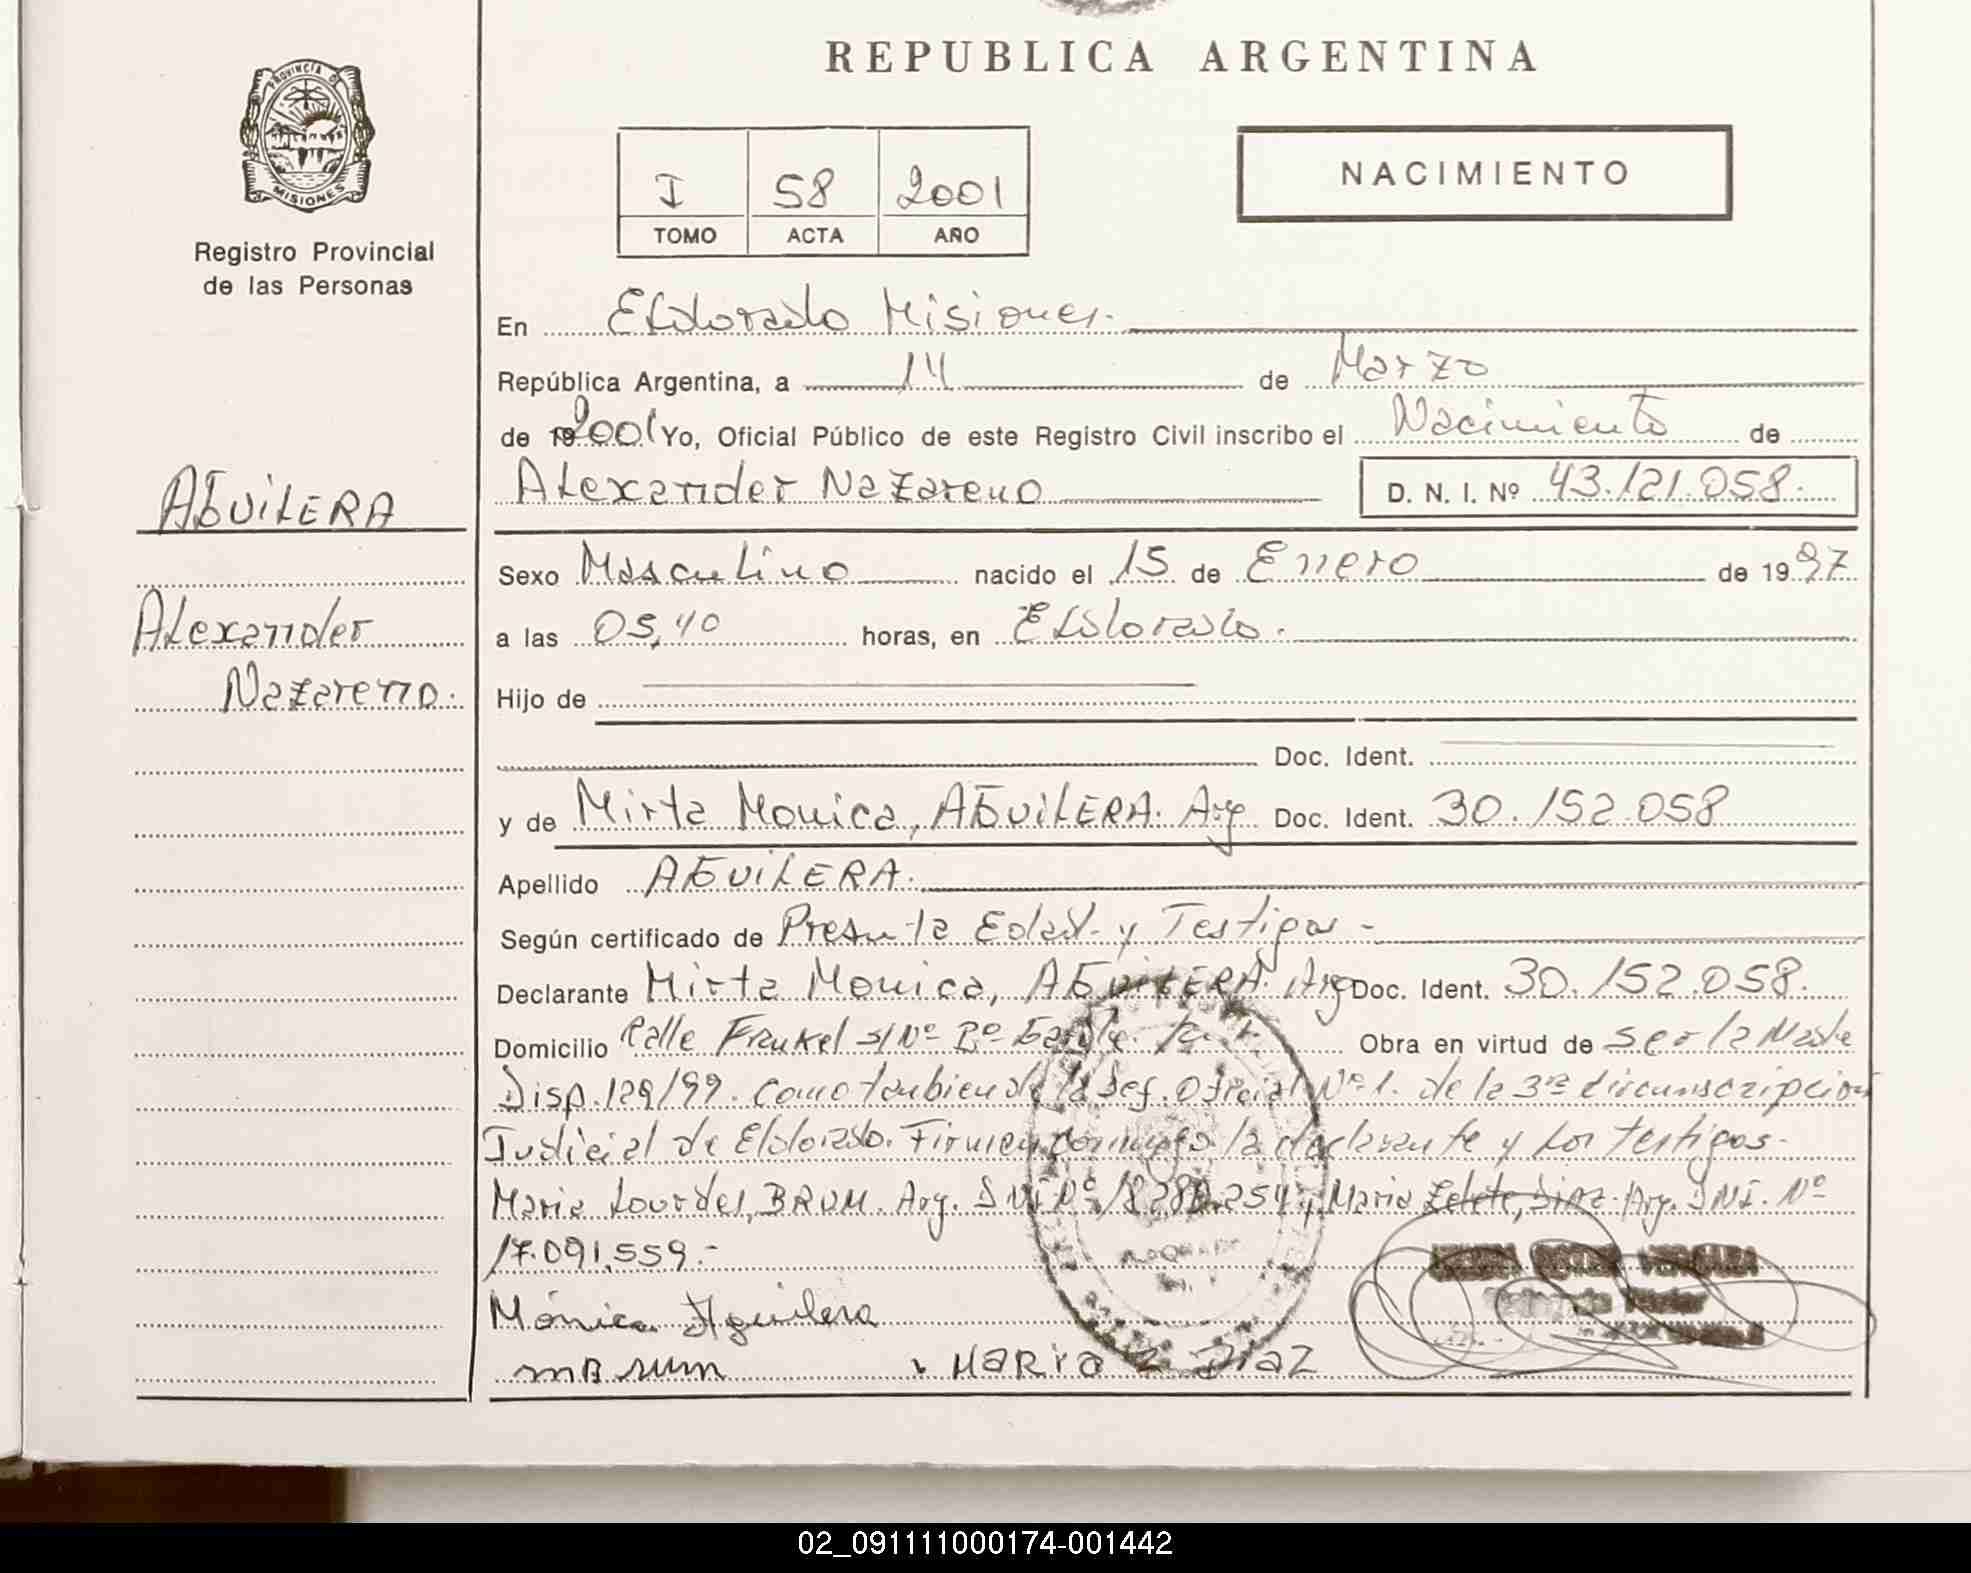 REPUBLICA ARGENTINA
PROVINCIA DE
MISIONES
Registro Provincial
de las Personas
I 58 2001
TOMO ACTA AÑO
NACIMIENTO
En Eldorado Misiones.
República Argentina, a 14 de Marzo
de 19 2001 Yo, Oficial Público de este Registro Civil inscribo el Nacimiento de
Alexander Nazareno D. N. I. Nº 43.121.058.
AGUILERA
Alexander
Nazareno.
Sexo Masculino nacido el 15 de Enero de 1997
a las 05,40 horas, en Eldorado.
Hijo de
Doc. Ident.
y de Mirta Monica, AGUILERA. Arg. Doc. Ident. 30.152.058
Apellido AGUILERA.
Según certificado de Presunta Edad. y Testigos -
Declarante Mirta Monica, AGUILERA. Arg Doc. Ident. 30.152.058.
Domicilio Calle Frankel s/Nº Bº Obra en virtud de ser la Madre
Disp. 129/99. como tambien de la Def. Oficial Nº 1. de la 3ra Circunscripcion
Judicial de Eldorado. Firman conmigo la declarante y los testigos.
Maria Lourdes, BRUM. Arg. DNI Nº 18.280.254 y Maria Zelete, DIAZ. Arg. DNI. Nº
17.091.559.-
Mónica Aguilera
MARIA Z DIAZ
02_091111000174-001442